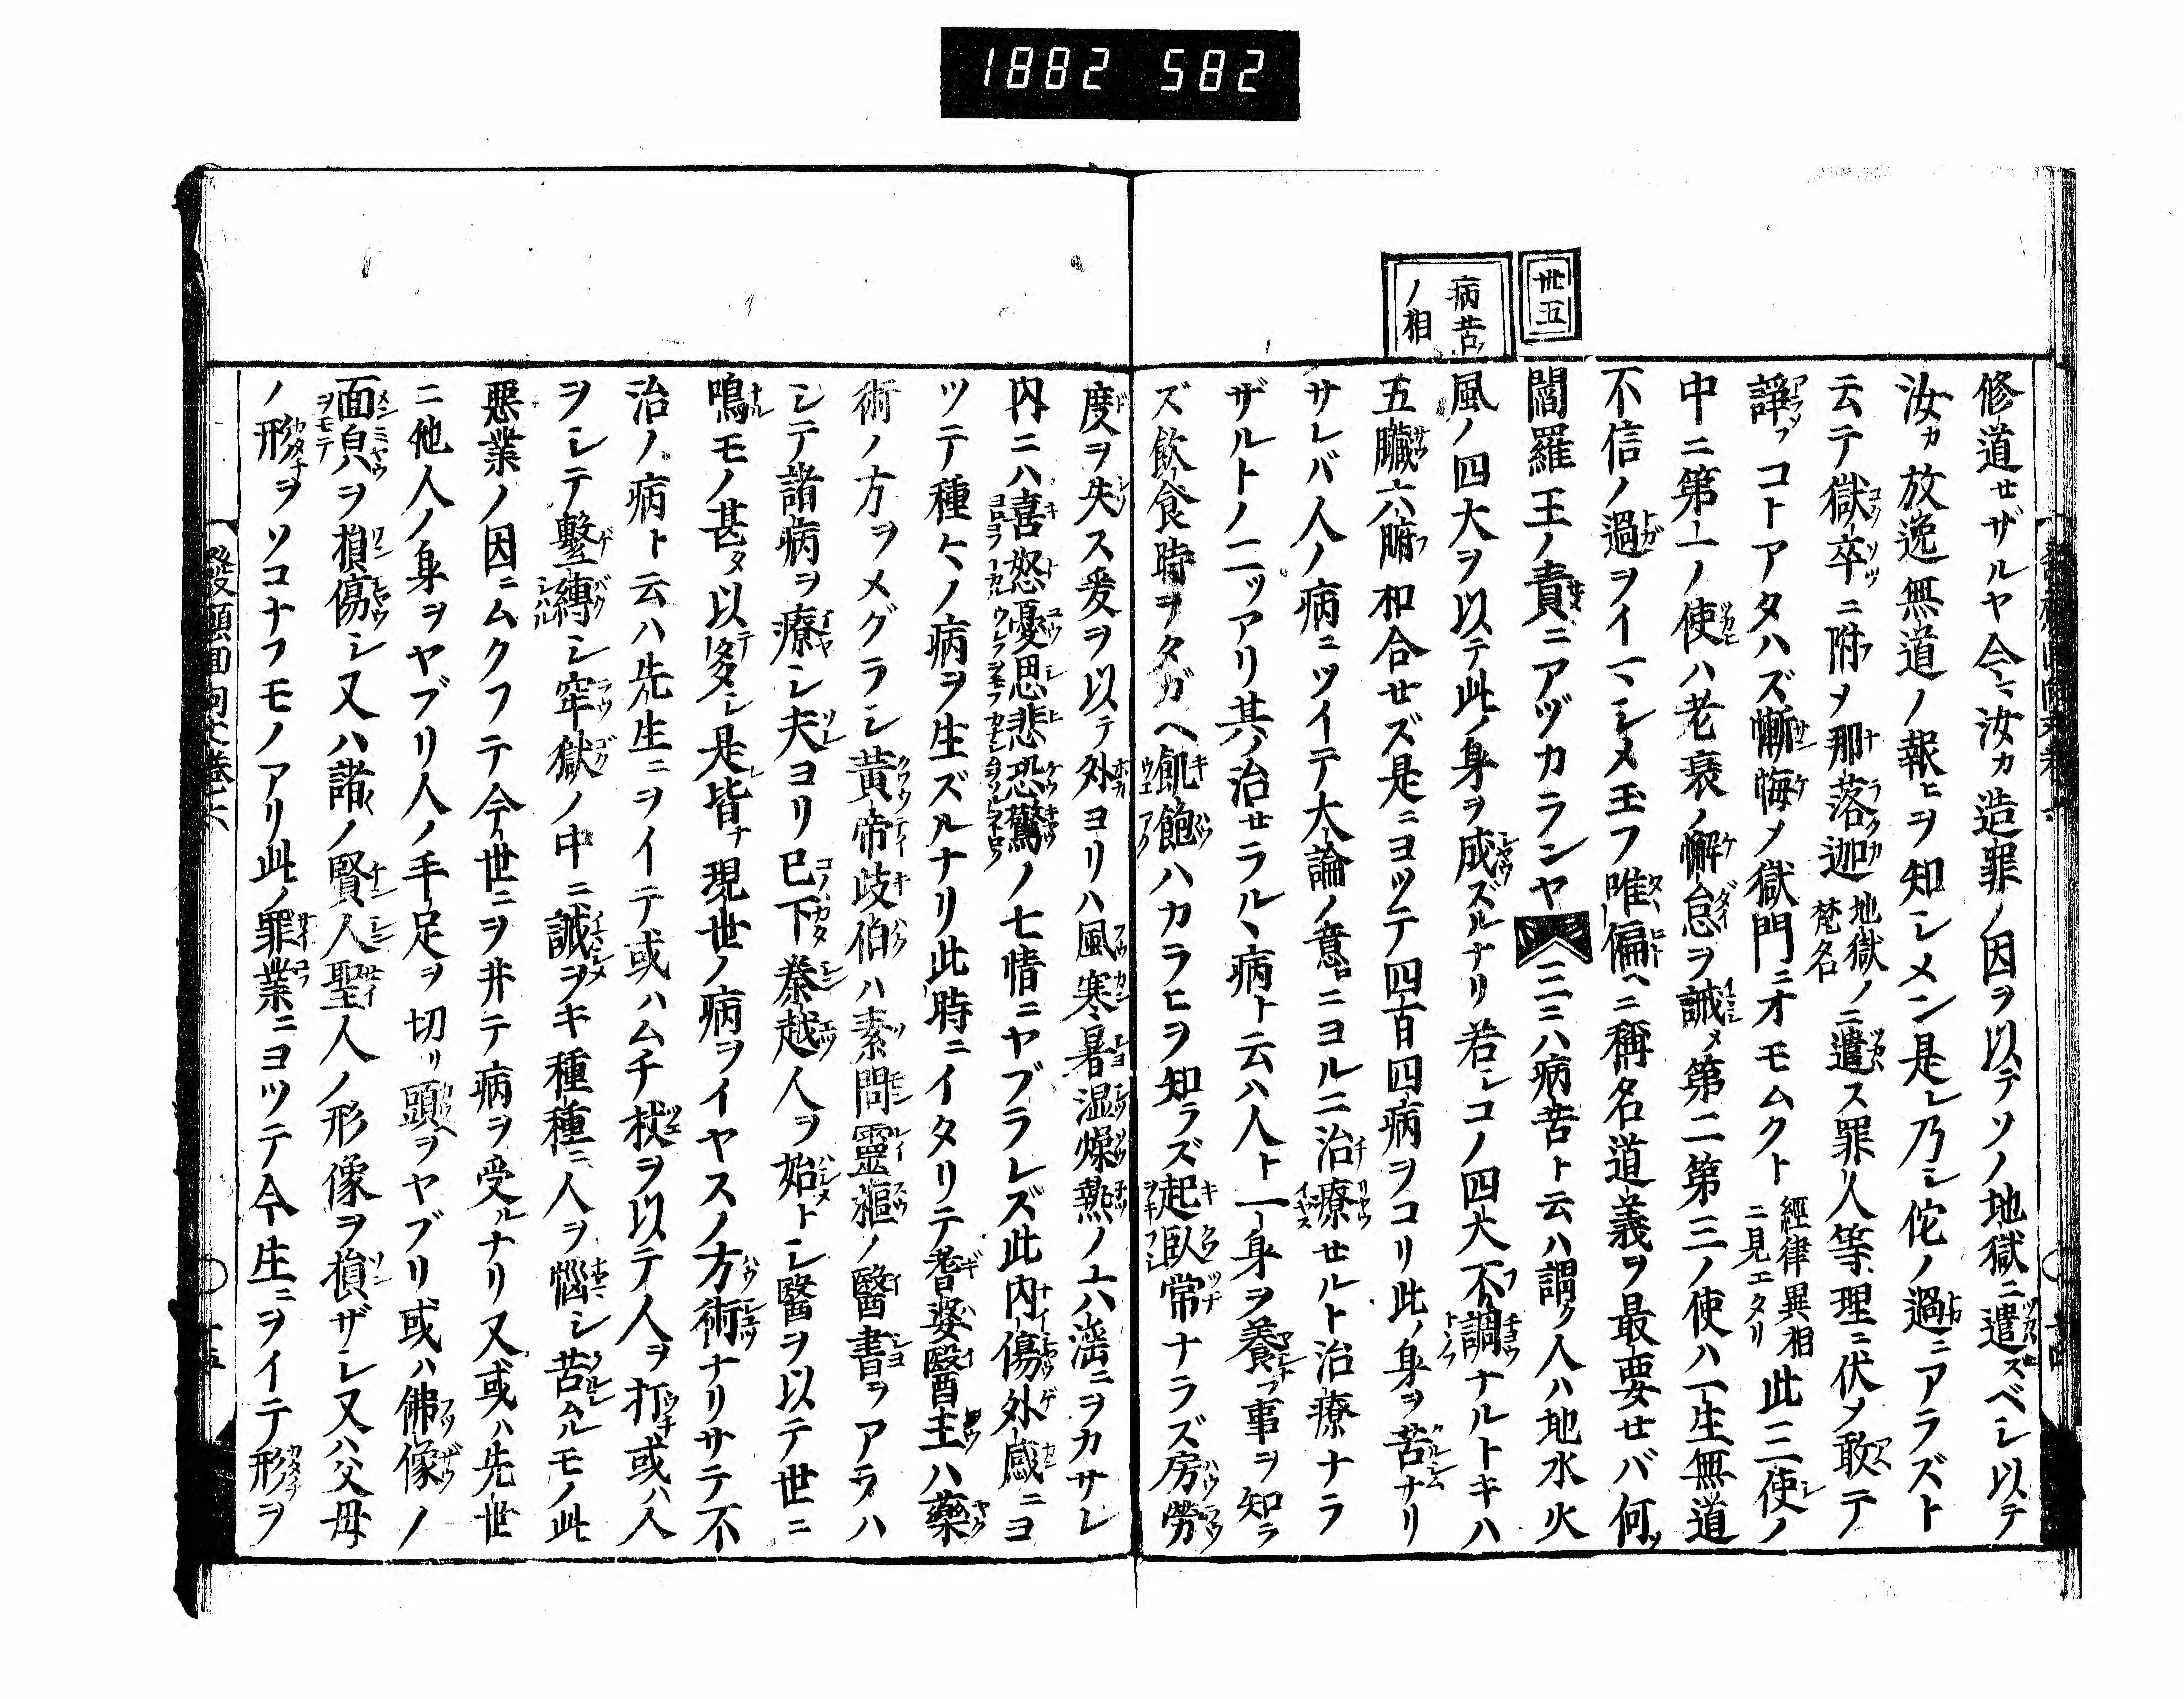 1882 582
卅五
病苦ノ相
修道セザルヤ今マ汝カ造罪ノ因ヲ以テソノ地獄ニ遣ズベシ以テ
汝カ放逸無道ノ報ヒヲ知シメン是レ乃シ佗ノ過ニアラズト
云テ獄卒ニ附メ那落迦地獄ノ梵名ニ遣ス罪人等理ニ伏メ敢テ
諍フコトアタハズ慚悔メ獄門ニオモムクト經律異相ニ見エタリ此三使ノ
中ニ第一ノ使ハ老衰ノ懈怠ヲ誡メ第二第三ノ使ハ一生無道
不信ノ過ヲイマシメ玉フ唯偏ヘニ稱名道義ヲ最要セバ何ソ
閻羅王ノ責ニアヅカランヤ三ニハ病苦ト云ハ謂ク人ハ地水火
風ノ四大ヲ以テ此ノ身ヲ成ズルナリ若シコノ四大不調ナルトキハ
五臟六腑和合セズ是ニヨツテ四百四病ヲコリ此ノ身ヲ苦ナリ
サレバ人ノ病ニツイテ大論ノ意ロニヨルニ治療セルト治療ナラ
ザルトノ二ツアリ其ノ治セラルヽ病ト云ハ人ト一身ヲ養フ事ヲ知ラ
ズ飲食時ヲタガヘ飢飽ハカラヒヲ知ラズ起臥常ナラズ房勞
度ヲ失ス爰ヲ以テ外ヨリハ風寒暑湿燥熱ノ六滛ニヲカサレ
内ニハ喜怒憂思悲恐驚ノ七情ニヤブラレズ此内傷外感ニヨ
ツテ種々ノ病ヲ生ズルナリ此時ニイタリテ耆婆醫王ハ藥
術ノ方ヲメグラシ黃帝歧伯ハ素問靈樞ノ醫書ヲアラハ
シテ諸病ヲ療シ夫ヨリ已下秦越人ヲ始トシ醫ヲ以テ世ニ
鳴モノ甚タ以テ多シ是レ皆ナ現世ノ病ヲイヤスノ方術ナリサテ不
治ノ病ト云ハ先生ニヲイテ或ハムチ杖ヲ以テ人ヲ打チ或ハ人
ヲシテ繫縛シ牢獄ノ中ニ誡ヲキ種種ニ人ヲ惱シ苦ムルモノ此
悪業ノ因ニムクフテ今世ニヲ井テ病ヲ受ルナリ又或ハ先世
ニ他人ノ身ヲヤブリ人ノ手足ヲ切リ頭ヲヤブリ或ハ佛像ノ
面貌ヲ損傷シ又ハ諸ノ賢人聖人ノ形像ヲ損ザシ又ハ父母
ノ形ヲソコナフモノアリ此ノ罪業ニヨツテ今生ニヲイテ形ヲ
發願囬向文卷六